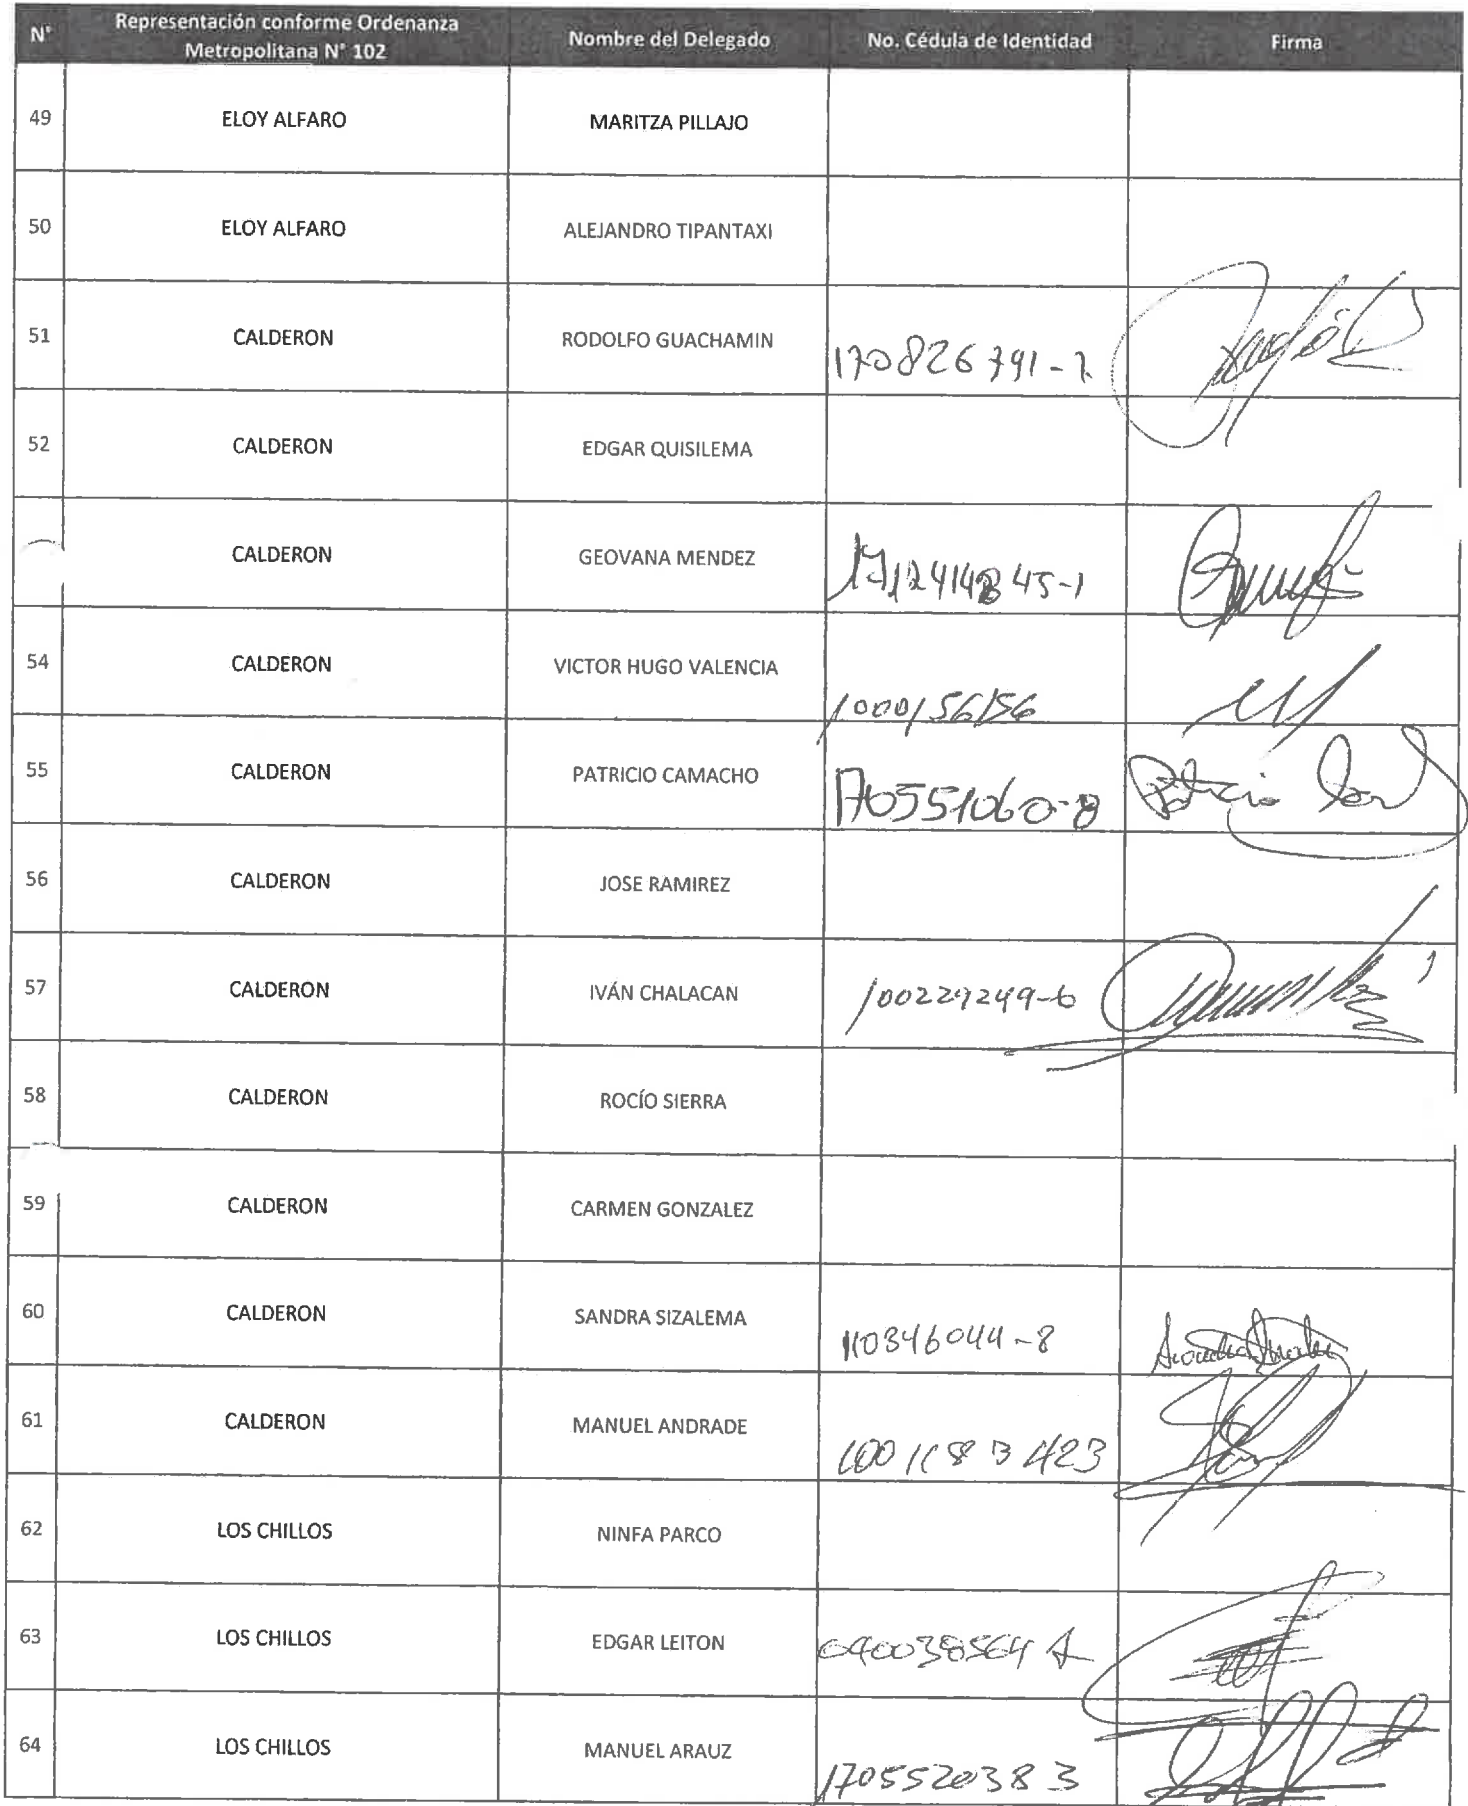 N° Representación conforme Ordenanza Metropolitana N° 102 Nombre del Delegado No. Cédula de Identidad Firma
49 ELOY ALFARO MARITZA PILLAJO
50 ELOY ALFARO ALEJANDRO TIPANTAXI
51 CALDERON RODOLFO GUACHAMIN 170826791-7
52 CALDERON EDGAR QUISILEMA
CALDERON GEOVANA MENDEZ
54 CALDERON VICTOR HUGO VALENCIA 1000156156
55 CALDERON PATRICIO CAMACHO 170551060-8
56 CALDERON JOSE RAMIREZ
57 CALDERON IVÁN CHALACAN 100229249-6
58 CALDERON ROCÍO SIERRA
59 CALDERON CARMEN GONZALEZ
60 CALDERON SANDRA SIZALEMA 110346044-8
61 CALDERON MANUEL ANDRADE 1001183423
62 LOS CHILLOS NINFA PARCO
63 LOS CHILLOS EDGAR LEITON
64 LOS CHILLOS MANUEL ARAUZ 1705520383